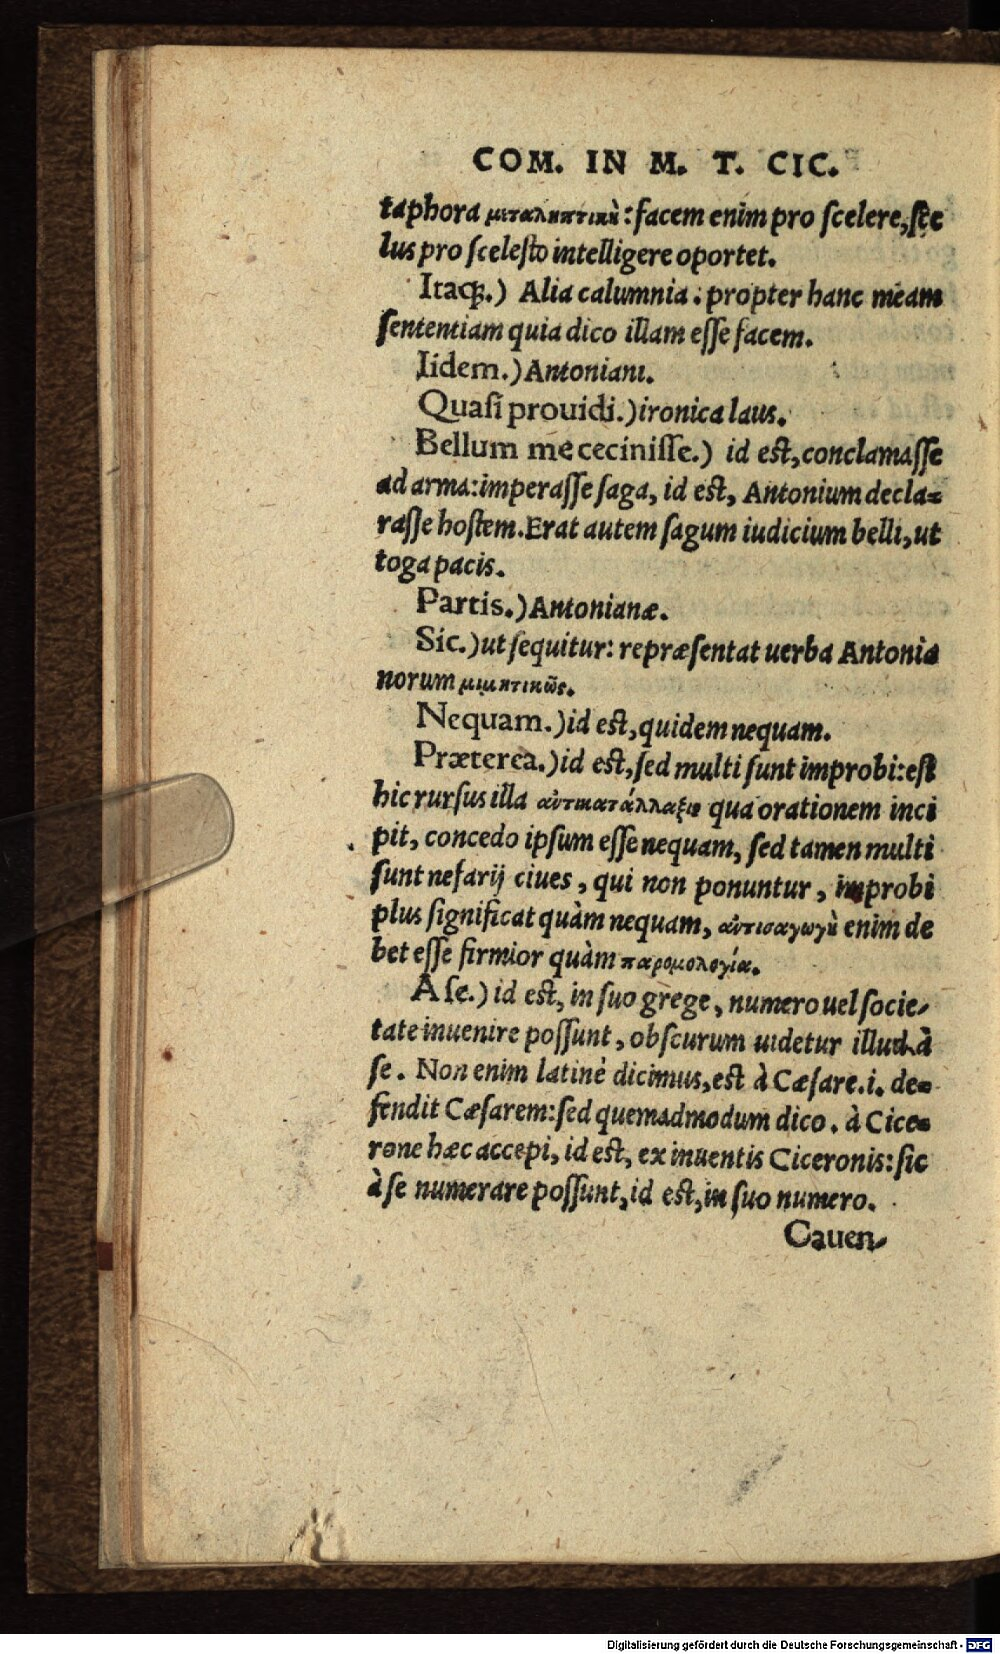 COM. IN M. T. CIC.
taphora μεταληπτικὴ: facem enim pro scelere, sce
lus pro scelesto intelligere oportet.
Itaq;.) Alia calumnia: propter hanc meam
sententiam quia dico illam esse facem.
Iidem.) Antoniani.
Quasi prouidi.) ironica laus.
Bellum me cecinisse.) id est, conclamasse
ad arma: imperasse saga, id est, Antonium decla=
rasse hostem. Erat autem sagum iudicium belli, ut
toga pacis.
Partis.) Antonianæ.
Sic.) ut sequitur: repræsentat uerba Antonia
norum μιμητικῶς.
Nequam.) id est, quidem nequam.
Præterea.) id est, sed multi sunt improbi: est
hic rursus illa ἀντικατάλλαξις qua orationem inci
pit, concedo ipsum esse nequam, sed tamen multi
sunt nefarij ciues, qui non ponuntur, improbi
plus significat quàm nequam, ἀντισαγωγὴ enim de
bet esse firmior quàm παρομολογία.
A se.) id est, in suo grege, numero uel socie-
tate inuenire possunt, obscurum uidetur illud à
se. Non enim latinè dicimus, est à Cæsare .i. de=
fendit Cæsarem: sed quemadmodum dico. à Cice=
rone hæc accepi, id est, ex inuentis Ciceronis: sic
à se numerare possunt, id est, in suo numero.
Cauen-
Digitalisierung gefördert durch die Deutsche Forschungsgemeinschaft - DFG